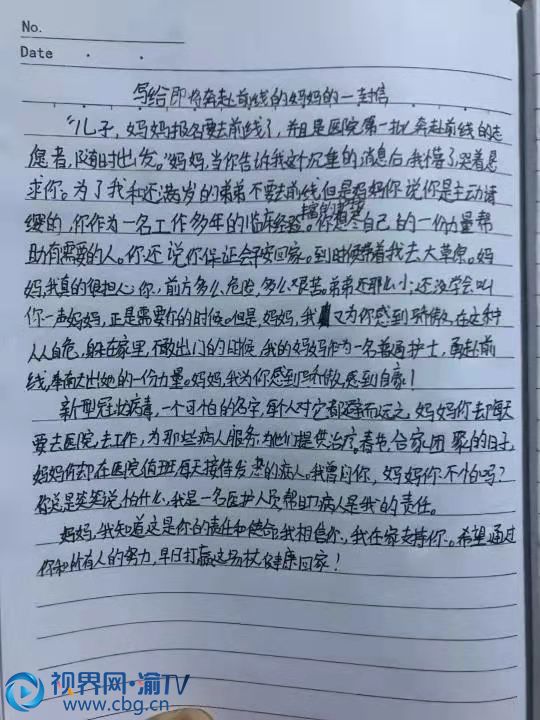 No.
Date
写给即将奔赴前线的妈妈的一封信
“儿子，妈妈报名要去前线了，并且是医院第一批奔赴前线的志
愿者，随时出发。”妈妈，当你告诉我这个沉重的消息后，我懵了，哭着恳
求你。为了我和还未满岁的弟弟不要去前线但是妈妈你说你是主动请
缨的，你作为一名工作多年的临床经验 护士 你想尽自己的一份力量帮
助有需要的人。你还说你保证会平安回家。到时候带着我去大草原。妈
妈，我真的很担心你，前方多么危险，多么艰苦，弟弟还那么小；还没学会叫
你一声妈妈，正是需要你的时候。但是，妈妈，我又为你感到骄傲，在这种
人人自危，躲在家里，不敢出门的时候，我的妈妈作为一名普通护士，勇赴前
线，奉献出她的一份力量。妈妈，我为你感到骄傲，感到自豪！
新型冠状病毒，一个可怕的名字，每个人对它都避而远之，妈妈你却每天
要去医院，去工作，为那些病人服务，为他们提供治疗。春节，合家团聚的日子，
妈妈你却在医院值班每天接待发热的病人。我曾问你，妈妈你不怕吗？
你总是笑笑说怕什么，我是一名医护人员帮助病人是我的责任。
妈妈，我知道这是你的责任和使命，我相信你，我在家支持你。希望通过
你和所有人的努力，早日打赢这场仗，健康回家！
视界网·渝TV
www.cbg.cn